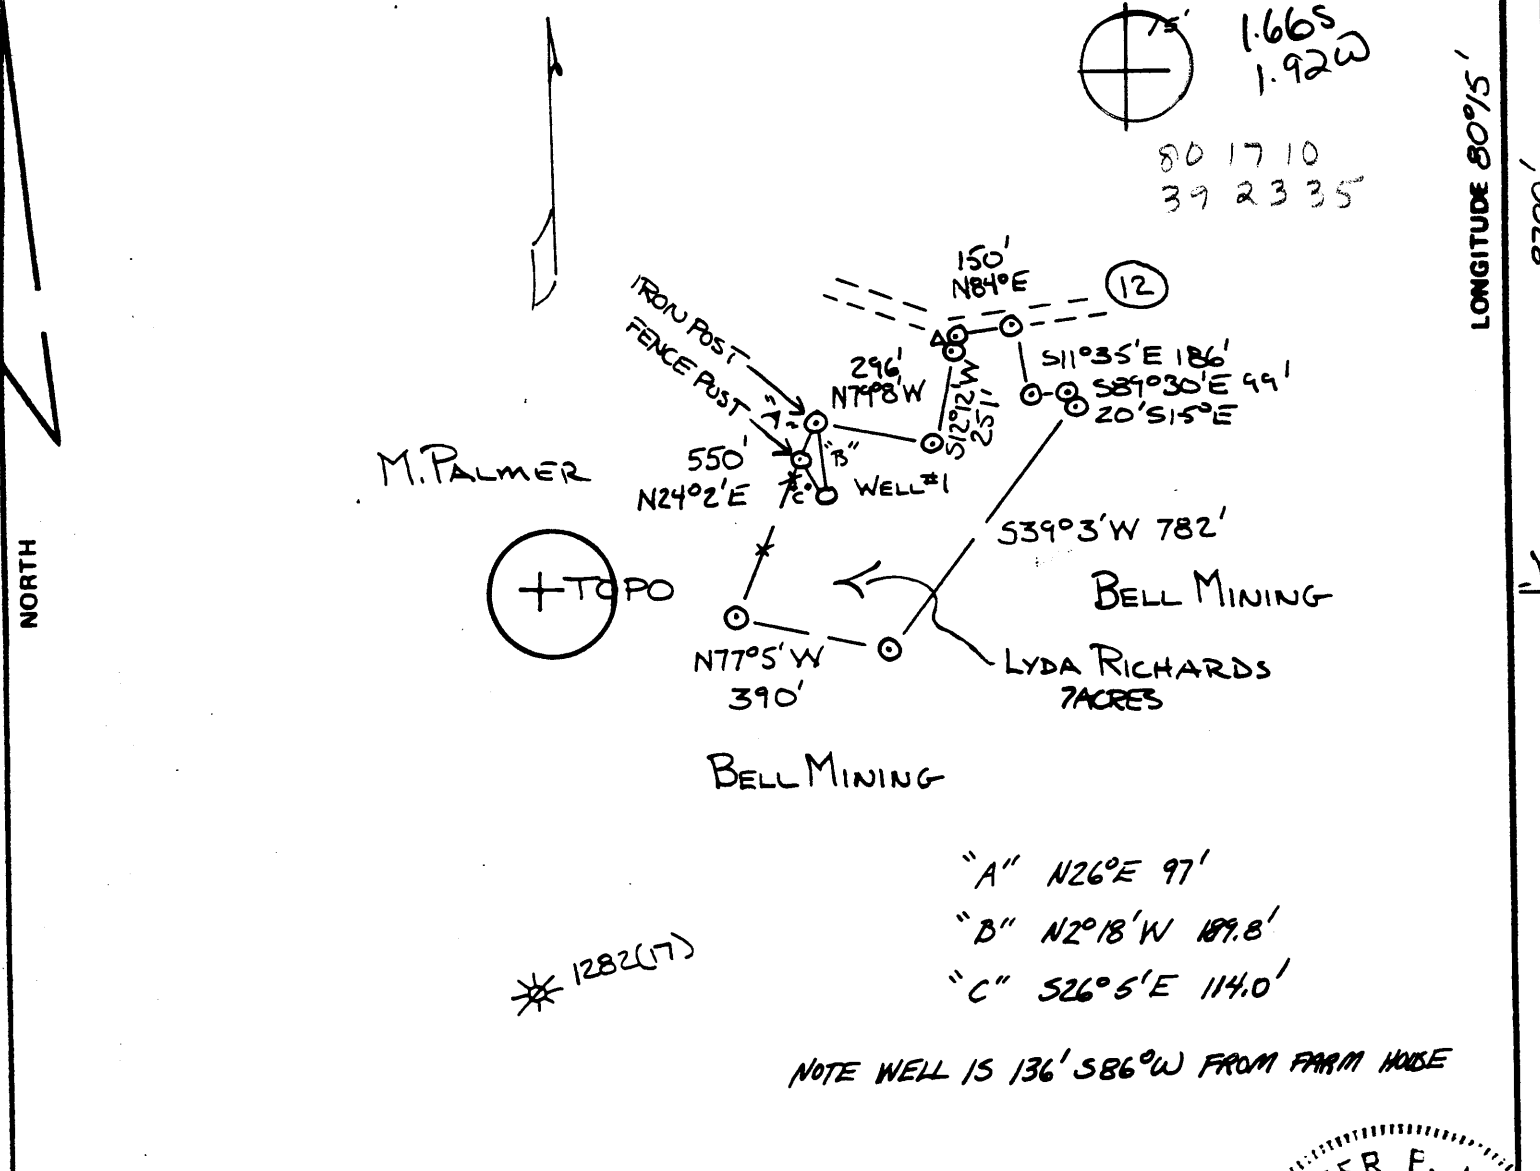 15'
1.66S
1.92W
80 17 10
39 23 35
LONGITUDE 80°15'
8700'
150'
N84°E
12
IRON POST
FENCE POST
296'
N79°8'W
S12°12'W
251'
S11°35'E 186'
S89°30'E 99'
20' S15°E
"A"
"B"
"C"
WELL #1
M. PALMER
550'
N24°2'E
S39°3'W 782'
NORTH
TOPO
BELL MINING
N77°5'W
390'
LYDA RICHARDS
7 ACRES
BELL MINING
"A" N26°E 97'
"B" N2°18'W 189.8'
"C" S26°5'E 114.0'
1282(17)
NOTE WELL IS 136' S86°W FROM FARM HOUSE